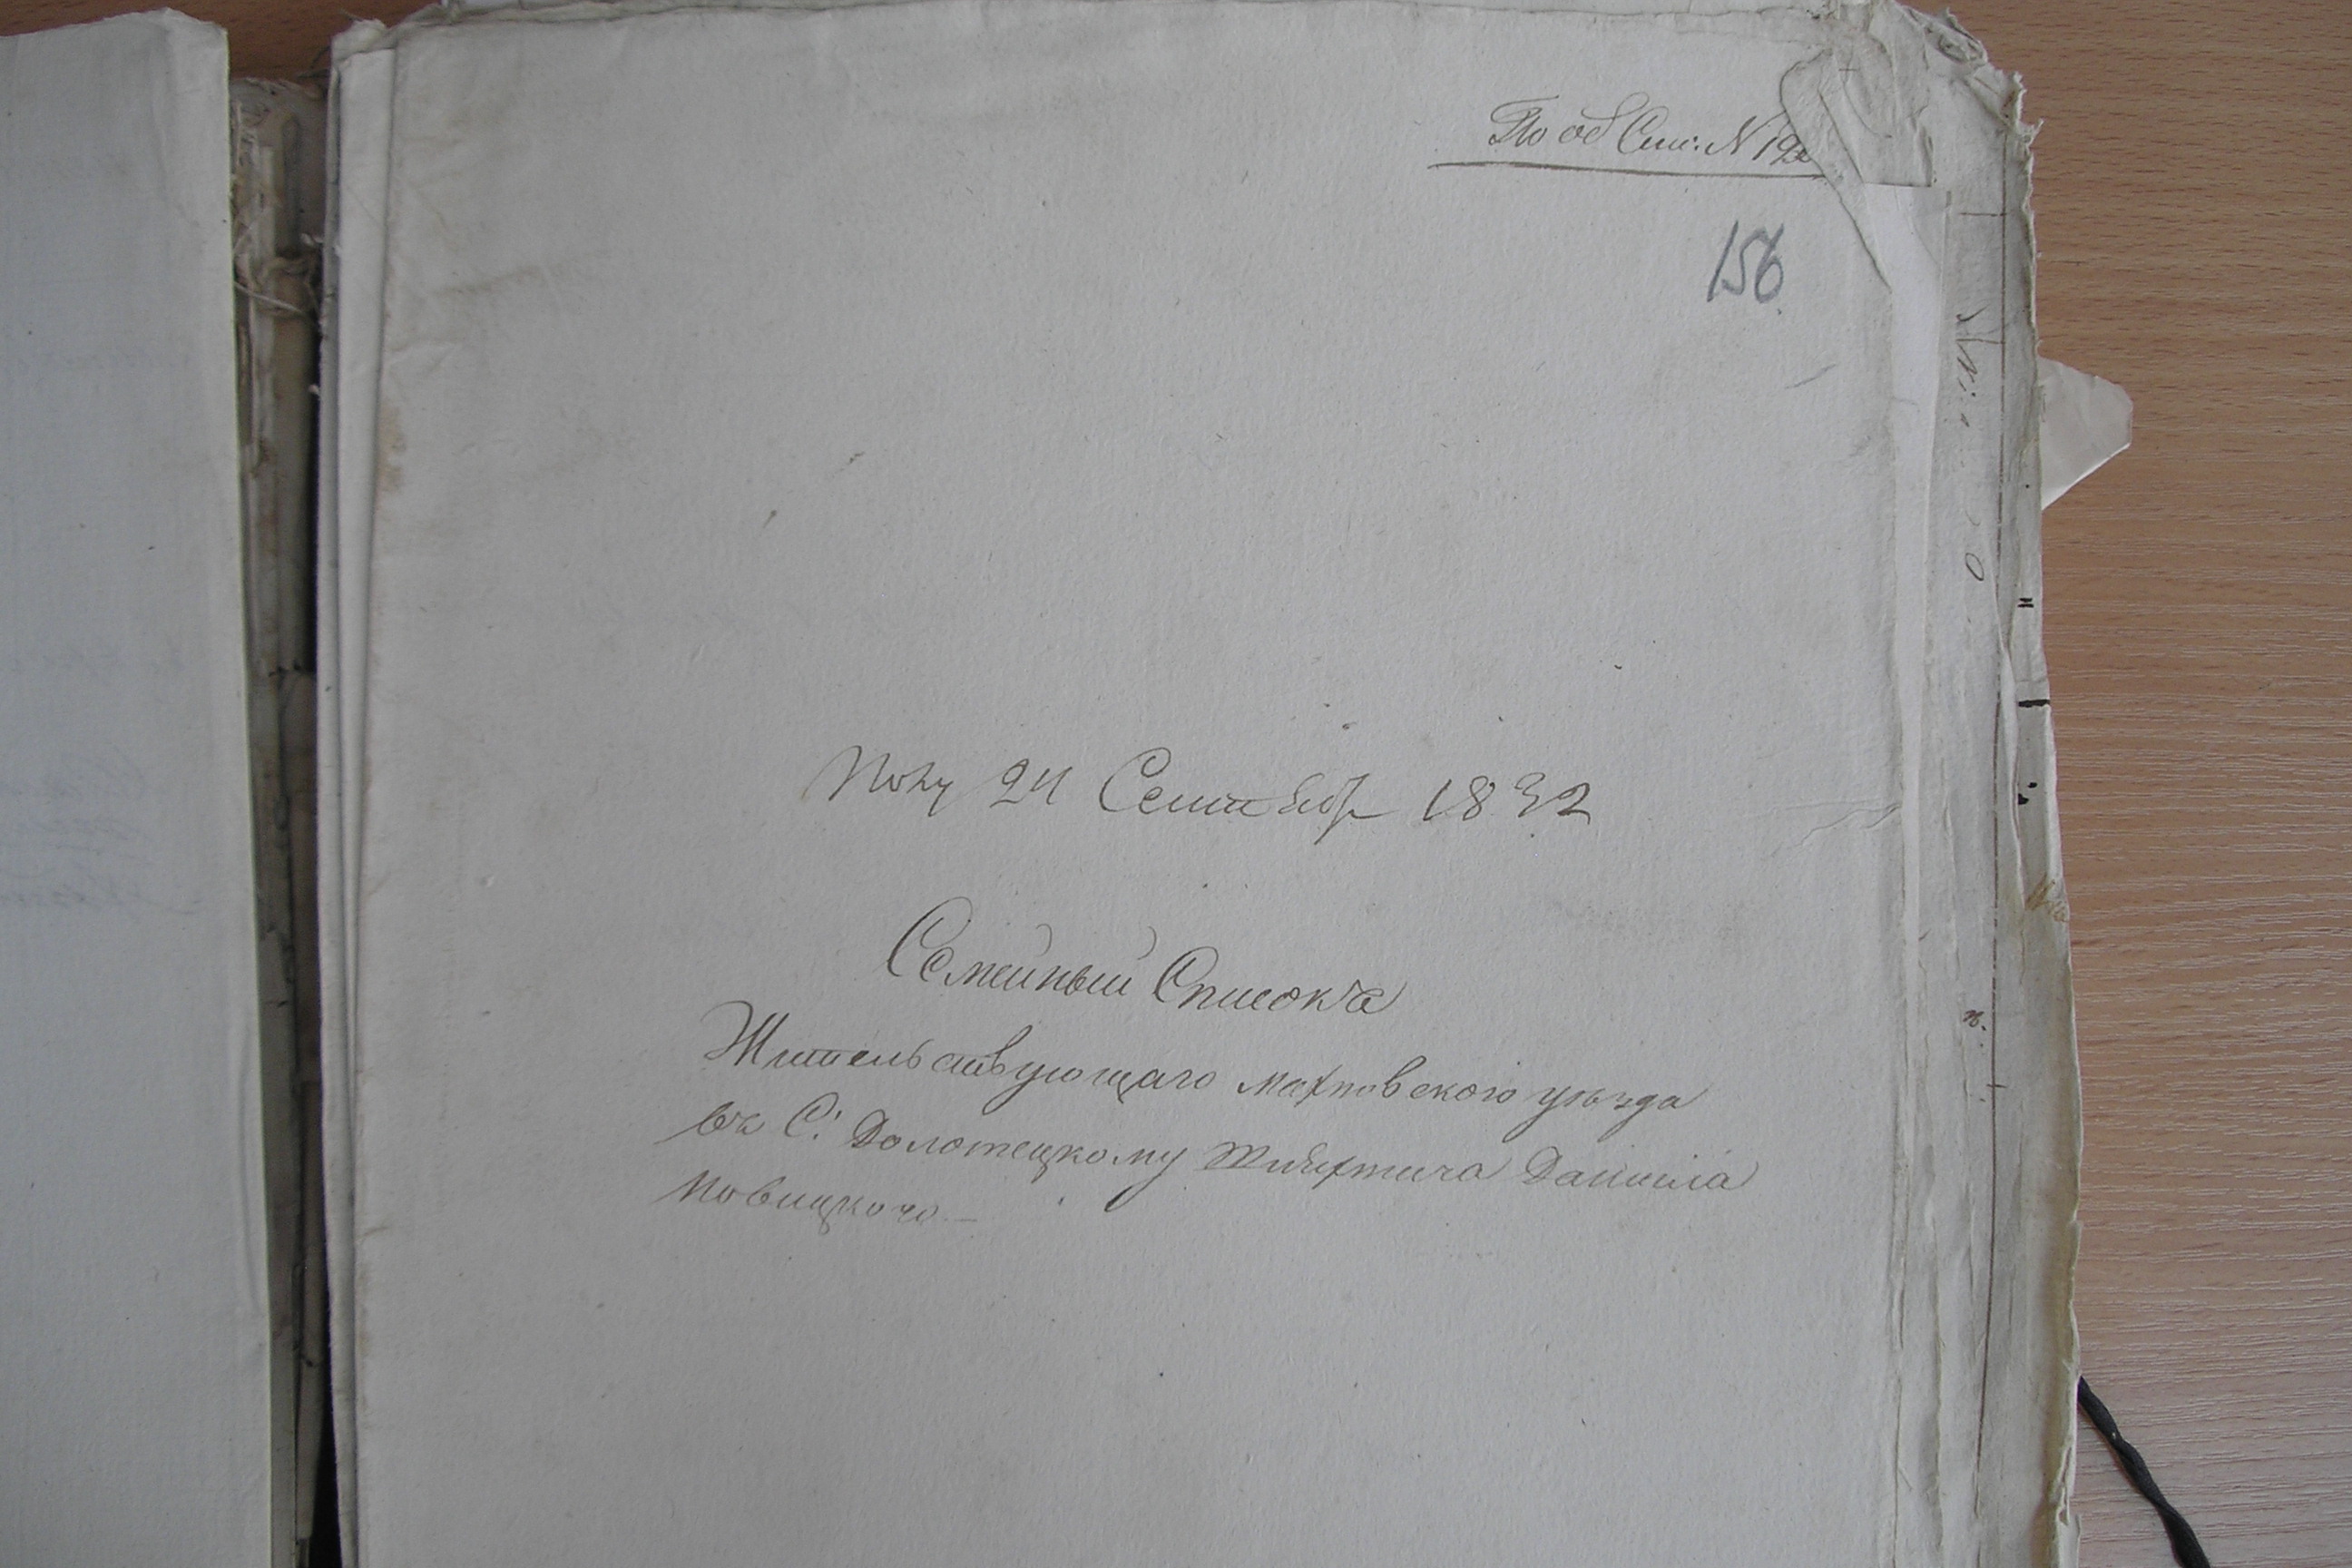 По об Спис: N 192
156
Полу 24 Сентября 1832
Семейный Списокъ
Жительствующаго Махновского уезда
въ С: Долотецкому Шляхтича Данила
Новицкого. —